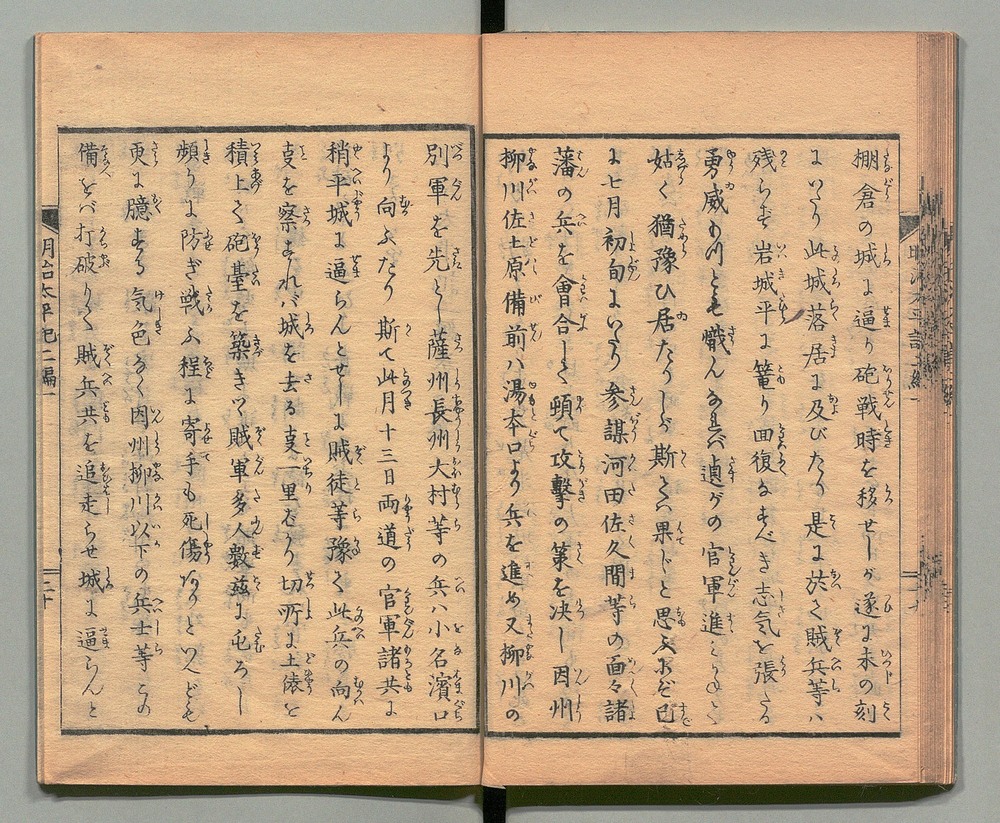 棚倉の城に逼り砲戦時を移せしが遂に未の刻
にいたり此城落居に及びたり是に於て賊兵等ハ
残らず岩城平に篭り回復なすべき志気を張たる
勇威ありとも懺んなれバ遉がの官軍進
姑く猶豫ひ居たりしが斯てハ果じと思ふ ぞ已
に七月初旬にいたり参謀河田佐久間等の面々諸
藩の兵を會合して頓て攻撃の策を决し因州
柳川佐土原備前ハ湯本口より兵を進め又柳川の
別軍を先とし薩州長州大村等の兵ハ小名濱口
より向ふたり斯て此月十三日両道の官軍諸共に
稍平城に逼らんとせしに賊徒等豫て此兵の向ん
支を察すれバ城を去る支一里むり切所に土俵を
積上て砲臺を築きて賊軍多人數茲に屯ろし
頻りに防ぎ戦ふ程に寄手も死傷ありといへども
更に臆する気色なく因州柳川以下の兵士等この
備をバ打破りて賊兵共を追走らせ城に逼らんと
明治太平記二編